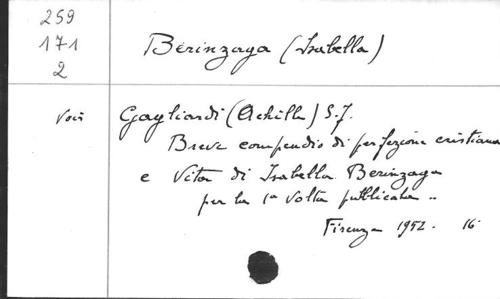 259
171
2
Bérinzaga (Isabella)
Voir Gagliardi (Achille) S.J.
Breve compendio di perfezione cristiana
e Vita di Isabella Berinzaga
per la 1a volta pubblicata ..
Firenze 1952. 16